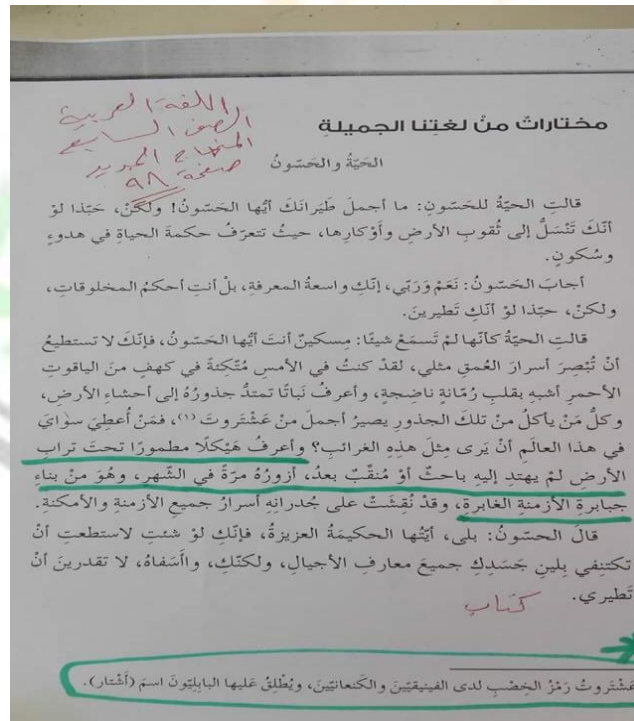 اللغة العربية
الصف السابع
المنهاج الجديد
صفحة ٩٨
مختاراتٌ منْ لغتِنا الجميلةِ
الحَيّةُ والحَسّونُ
قالتِ الحيّةُ للحَسّونِ: ما أجملَ طَيَرانَكَ أيُّها الحَسّونُ! ولكنْ، حَبّذا لوْ
أنّكَ تَنْسَلُّ إلى ثُقوبِ الأرضِ وأوْكارِها، حيثُ تتعرّفُ حكمةَ الحياةِ في هدوءٍ
وسُكونٍ.
أجابَ الحَسّونُ: نَعَمْ وَرَبّي، إنّكِ واسعةُ المعرفةِ، بلْ أنتِ أحكمُ المخلوقاتِ،
ولكنْ، حبّذا لوْ أنّكِ تَطيرينَ.
قالتِ الحيّةُ كأنّها لمْ تَسمَعْ شيئًا: مِسكينٌ أنتَ أيُّها الحَسّونُ، فإنّكَ لا تستطيعُ
أنْ تُبْصِرَ أسرارَ العُمقِ مثلي، لقدْ كنتُ في الأمسِ مُتّكِئةً في كهفٍ منَ الياقوتِ
الأحمرِ أشبهِ بقلبِ رُمّانةٍ ناضِجةٍ، وأعرفُ نَباتًا تمتدُّ جذورُهُ إلى أحشاءِ الأرضِ،
وكلُّ مَنْ يأكلُ منْ تلكَ الجذورِ يصيرُ أجملَ منْ عَشْتَروتَ (١)، فمَنْ أُعطِيَ سِوايَ
في هذا العالَمِ أنْ يَرى مِثلَ هذِهِ الغرائبِ؟ وأعرفُ هَيْكلًا مطمورًا تحتَ ترابِ
الأرضِ لمْ يهتدِ إليهِ باحثٌ أوْ مُنقّبٌ بعدُ، أزورُهُ مرّةً في الشّهرِ، وهُوَ منْ بناءِ
جبابرةِ الأزمنةِ الغابرةِ، وقدْ نُقِشَتْ على جُدرانِهِ أسرارُ جميعِ الأزمنةِ والأمكنةِ.
قالَ الحسّونُ: بلى، أيّتُها الحكيمَةُ العزيزةُ، فإنّكِ لوْ شئتِ لاستطعتِ أنْ
تكتنِفي بِلينِ جَسَدِكِ جميعَ معارفِ الأجيالِ، ولكنّكِ، واأَسَفاهُ، لا تقدرينَ أنْ
تَطيري.
كتاب
عَشْتَروتُ رَمْزُ الخِصْبِ لدى الفينيقيّينَ والكَنعانيّينَ، ويُطْلِقُ عَليها البابِليّونَ اسمَ (أَشْتار).